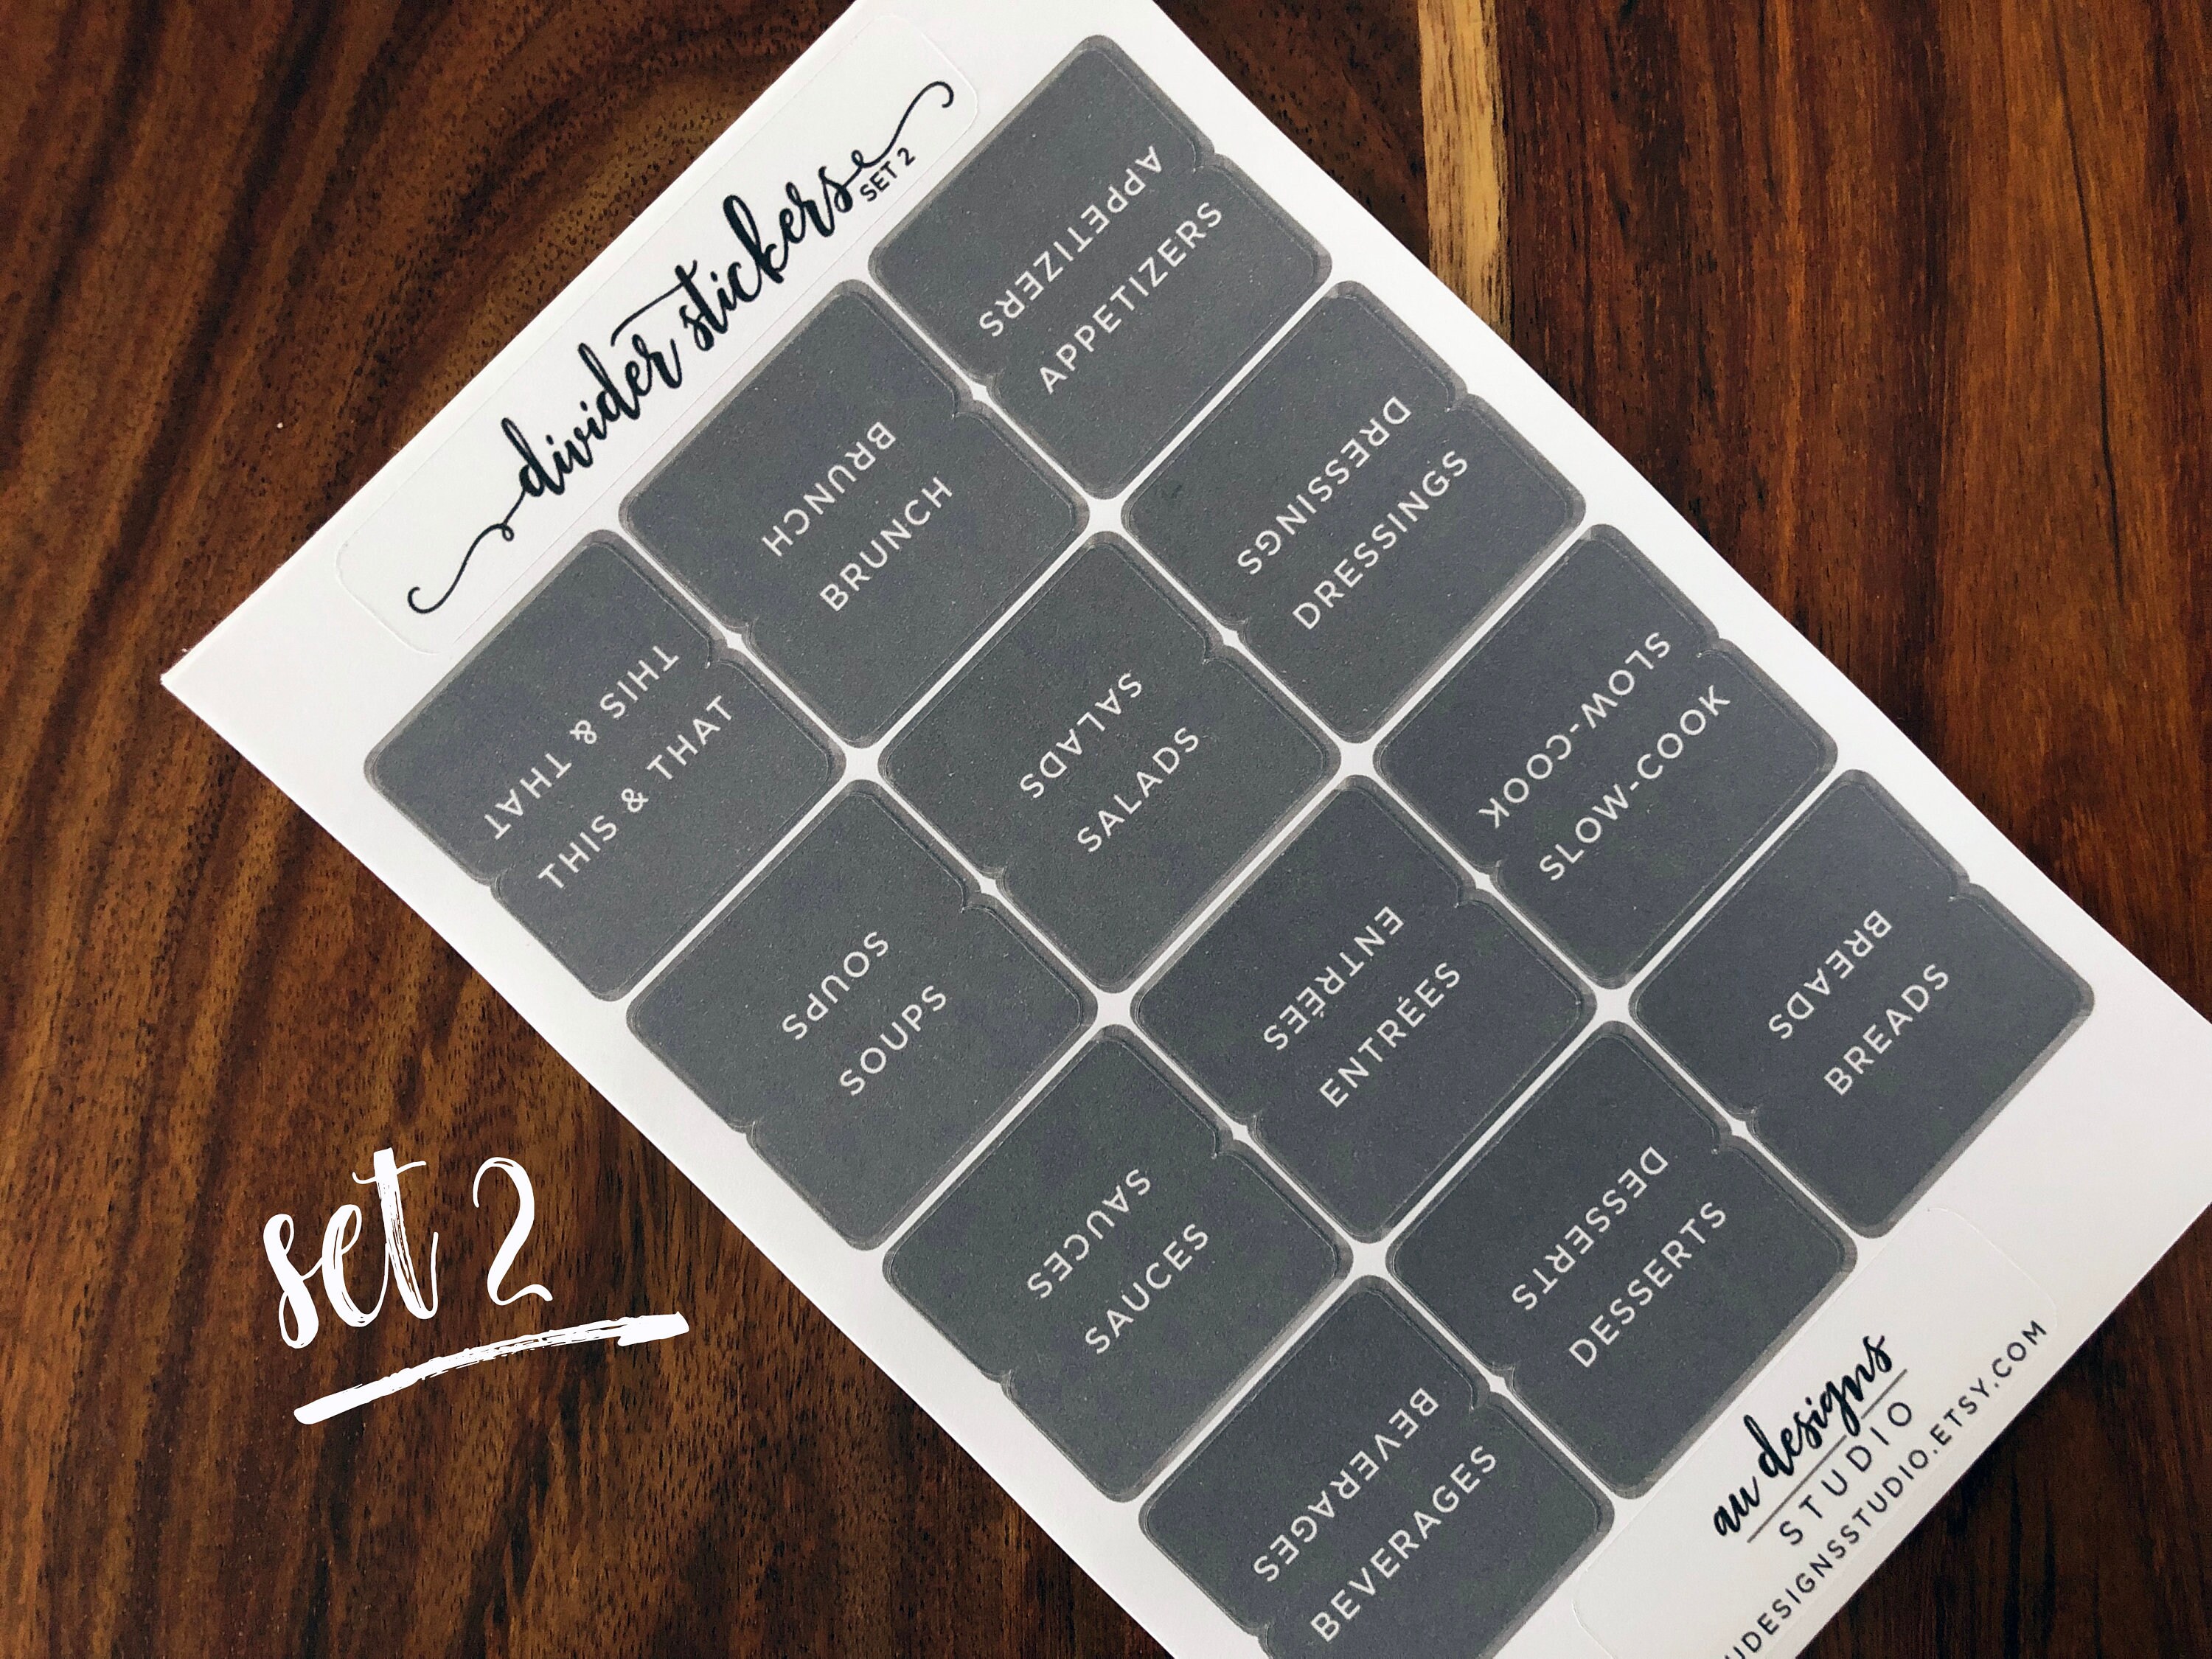 divider stickers
SET 2
THIS & THAT
THIS & THAT
BRUNCH
BRUNCH
APPETIZERS
APPETIZERS
SOUPS
SOUPS
SALADS
SALADS
DRESSINGS
DRESSINGS
SAUCES
SAUCES
ENTRÉES
ENTRÉES
SLOW-COOK
SLOW-COOK
BEVERAGES
BEVERAGES
DESSERTS
DESSERTS
BREADS
BREADS
au designs
STUDIO
UDESIGNSSTUDIO.ETSY.COM
set 2